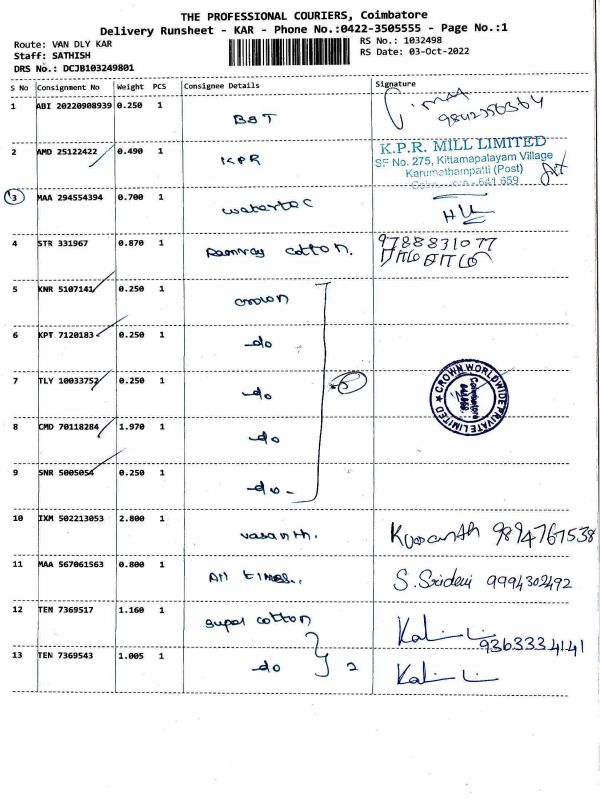 THE PROFESSIONAL COURIERS, Coimbatore
Delivery Runsheet - KAR - Phone No.:0422-3505555 - Page No.:1
Route: VAN DLY KAR RS No.: 1032498
Staff: SATHISH RS Date: 03-Oct-2022
DRS No.: DCJB103249801
S No Consignment No Weight PCS Consignee Details Signature
1 ABI 20220908939 0.250 1 BST 9842356364
2 AMD 25122422 0.490 1 KPR K.P.R. MILL LIMITED
SF No. 275, Kittamapalayam Village
Karumathampatti (Post)
641 659
3 MAA 294554394 0.700 1 watertec
4 STR 331967 0.870 1 cotton. 9788831077
5 KNR 5107141 0.250 1 crown
6 KPT 7120183 0.250 1 do
7 TLY 10033752 0.250 1 do CROWN WORLDWIDE PRIVATE LIMITED
Coimbatore
8 CMD 70118284 1.970 1 do
9 SNR 5005054 0.250 1 do
10 IXM 502213053 2.800 1 vasanth. 9894767538
11 MAA 567061563 0.800 1 All times.. S. Sridevi 9994302492
12 TEN 7369517 1.160 1 super cotton 9363334141
13 TEN 7369543 1.005 1 do 2